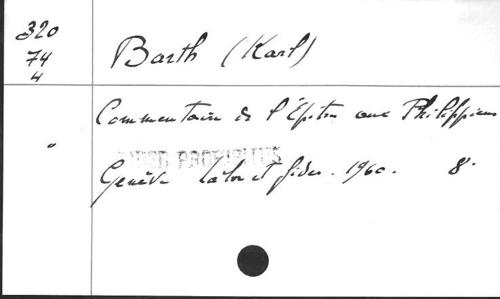 320
74
4
Barth (Karl)
Commentaire de l'Épitre aux Philippiens
"
LIBRI PROHIBITUS
Genève Labor et fides. 1960. 8°